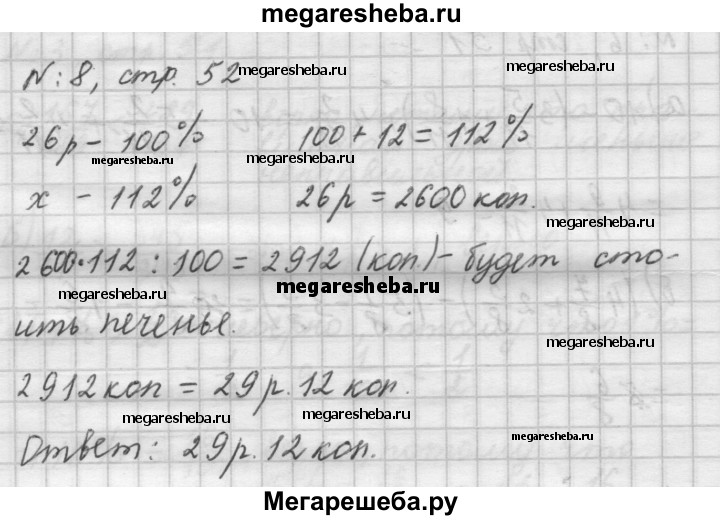 megaresheba.ru
№: 8, стр. 52 megaresheba.ru megaresheba.ru
26р – 100% 100 + 12 = 112%
megaresheba.ru megaresheba.ru
х – 112% 26р = 2600 коп.
megaresheba.ru
2600·112 : 100 = 2912 (коп) – будет сто-
megaresheba.ru megaresheba.ru
ить печенье.
megaresheba.ru
2912 коп = 29 р. 12 коп.
megaresheba.ru megaresheba.ru
Ответ: 29 р. 12 коп.
megaresheba.ru
Мегарешеба.ру